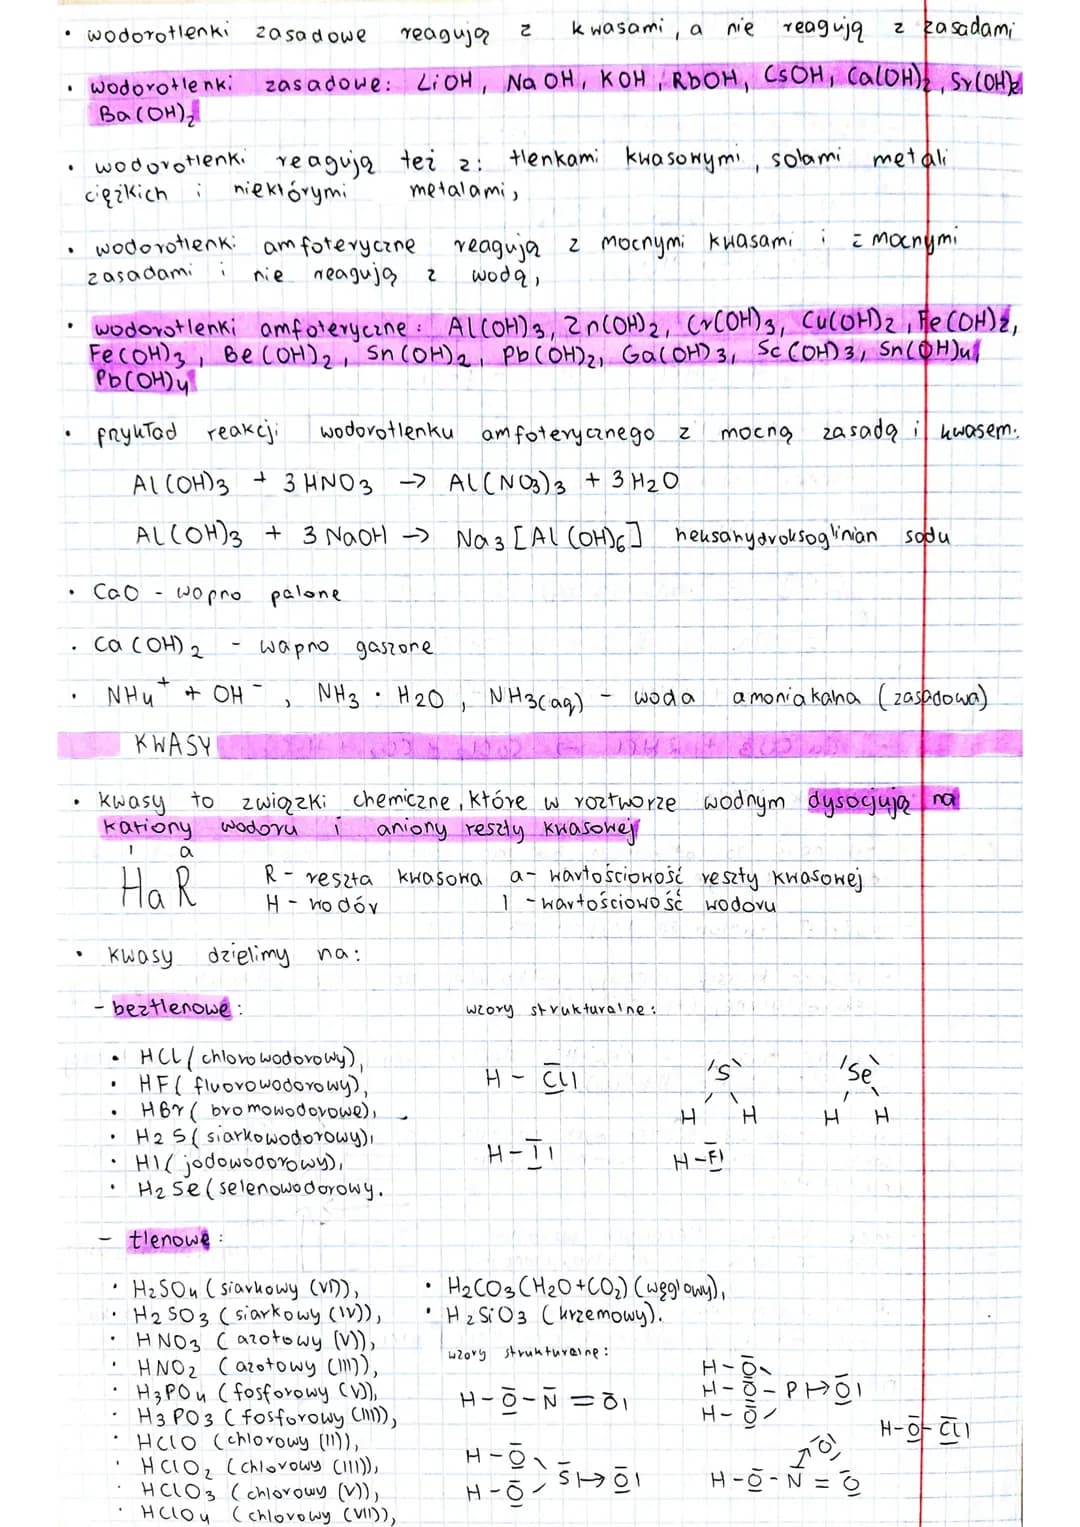 • wodorotlenki zasadowe reagują z kwasami, a nie reagują z zasadami
• wodorotlenki zasadowe: LiOH, NaOH, KOH, RbOH, CsOH, Ca(OH)2, Sr(OH)2
Ba(OH)2
• wodorotlenki reagują też z: tlenkami kwasowymi, solami metali
ciężkich i niektórymi metalami,
• wodorotlenki amfoteryczne reagują z mocnymi kwasami i z mocnymi
zasadami i nie reagują z wodą,
• wodorotlenki amfoteryczne: Al(OH)3, Zn(OH)2, Cr(OH)3, Cu(OH)2, Fe(OH)2,
Fe(OH)3, Be(OH)2, Sn(OH)2, Pb(OH)2, Ga(OH)3, Sc(OH)3, Sn(OH)4,
Pb(OH)4
• przykład reakcji wodorotlenku amfoterycznego z mocną zasadą i kwasem:
Al(OH)3 + 3HNO3 → Al(NO3)3 + 3H2O
Al(OH)3 + 3NaOH → Na3[Al(OH)6] heksahydroksoglinian sodu
• CaO - wapno palone
• Ca(OH)2 - wapno gaszone
• NH4+ + OH-, NH3 · H2O, NH3(aq) - woda amoniakalna (zasadowa)
KWASY
• kwasy to związki chemiczne, które w roztworze wodnym dysocjują na
kationy wodoru i aniony reszty kwasowej
I a
HaR R - reszta kwasowa a - wartościowość reszty kwasowej
H - wodór I - wartościowość wodoru
• kwasy dzielimy na:
- beztlenowe: wzory strukturalne:
• HCl (chlorowodorowy),
• HF (fluorowodorowy),
• HBr (bromowodorowe),
• H2S (siarkowodorowy),
• HI (jodowodorowy),
• H2Se (selenowodorowy.
H - Cl
S
H H
Se
H H
H - I
H - F
- tlenowe:
• H2SO4 (siarkowy (VI)),
• H2SO3 (siarkowy (IV)),
• HNO3 (azotowy (V)),
• HNO2 (azotowy (III)),
• H3PO4 (fosforowy (V)),
• H3PO3 (fosforowy (III)),
• HClO (chlorowy (II)),
• HClO2 (chlorowy (III)),
• HClO3 (chlorowy (V)),
• HClO4 (chlorowy (VII)),
• H2CO3 (H2O+CO2) (węglowy),
• H2SiO3 (krzemowy).
wzory strukturalne:
H - O - N = O
H - O
H - O - P → O
H - O
H - O - Cl
H - O
H - O
S → O
O
H - O - N = O